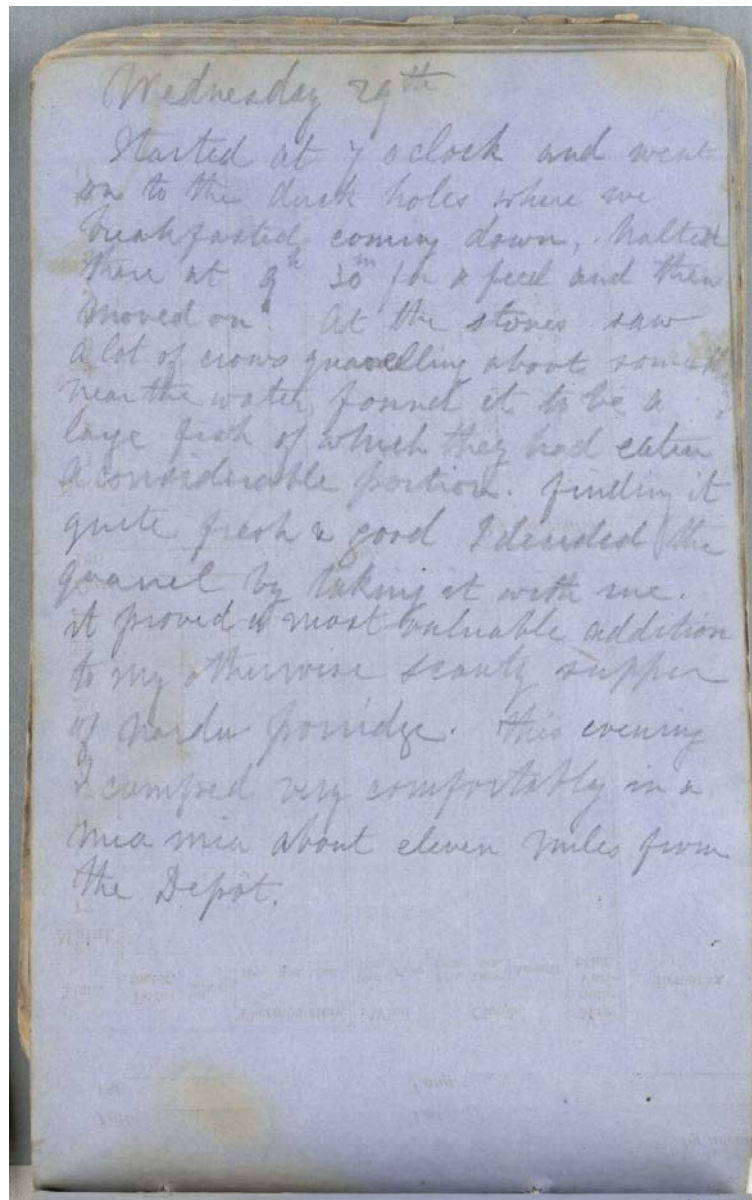 Wednesday 29th
Started at 7 oclock and went
on to the duck holes where we
breakfasted coming down. halted
there at 9h 30m for a feed and then
moved on. At the stones saw
a lot of crows quarelling about
near the water, found it to be a
large fish of which they had eaten
a considerable portion. finding it
quite fresh & good I decided the
quarrel by taking it with me.
it proved a most valuable addition
to my otherwise scanty supper
of nardu porridge. this evening
I camped very comfortably in a
mia mia about eleven miles from
the Depôt.